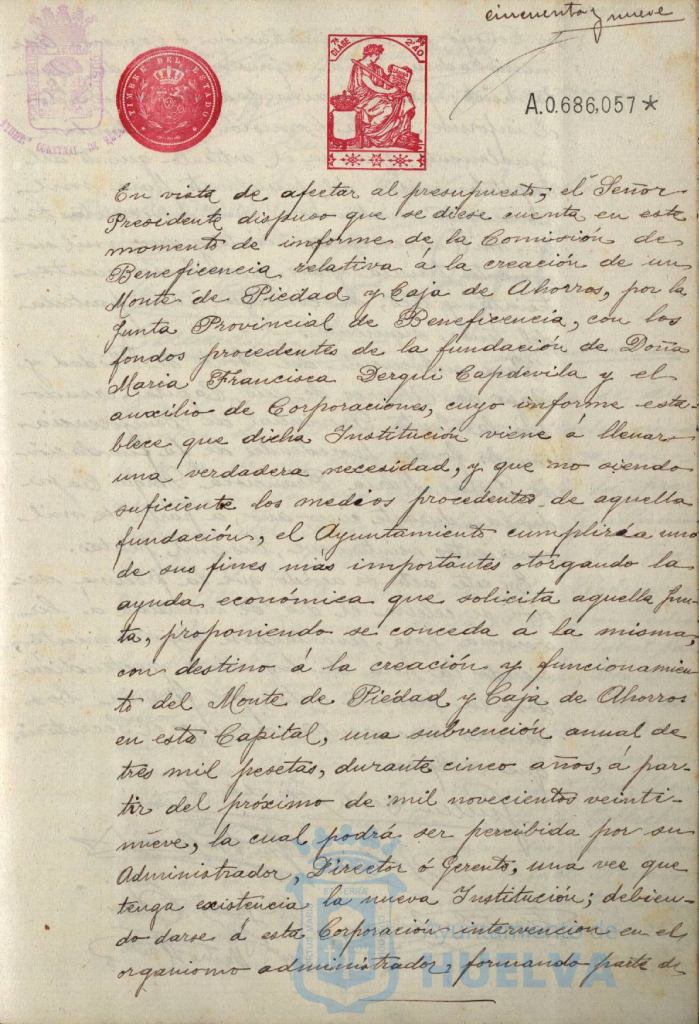 cincuenta y nueve
TIMBRE DEL ESTADO
7ª CLASE
2'40
A.0.686,057*
En vista de afectar al presupuesto, el Señor
Presidente dispuso que se diese cuenta en este
momento de informe de la Comisión de
Beneficencia relativa á la creación de un
Monte de Piedad y Caja de Ahorros, por la
Junta Provincial de Beneficencia, con los
fondos procedentes de la fundación de Doña
Maria Francisca Derqui Capdevila y el
auxilio de Corporaciones, cuyo informe esta-
blece que dicha Institución viene á llenar
una verdadera necesidad, y que no siendo
suficiente los medios procedentes de aquella
fundación, el Ayuntamiento cumpliría uno
de sus fines mas importantes otorgando la
ayuda económica que solicita aquella Jun-
ta, proponiendo se conceda á la misma,
con destino á la creación y funcionamien-
to del Monte de Piedad y Caja de Ahorros
en esta Capital, una subvención anual de
tres mil pesetas, durante cinco años, á par-
tir del próximo de mil novecientos veinti-
nueve, la cual podrá ser percibida por su
Administrador, Director ó Gerente, una vez que
tenga existencia la nueva Institución; debien-
do darse á esta Corporación intervención en el
organismo administrador, formando parte de
Ayuntamiento de
HUELVA